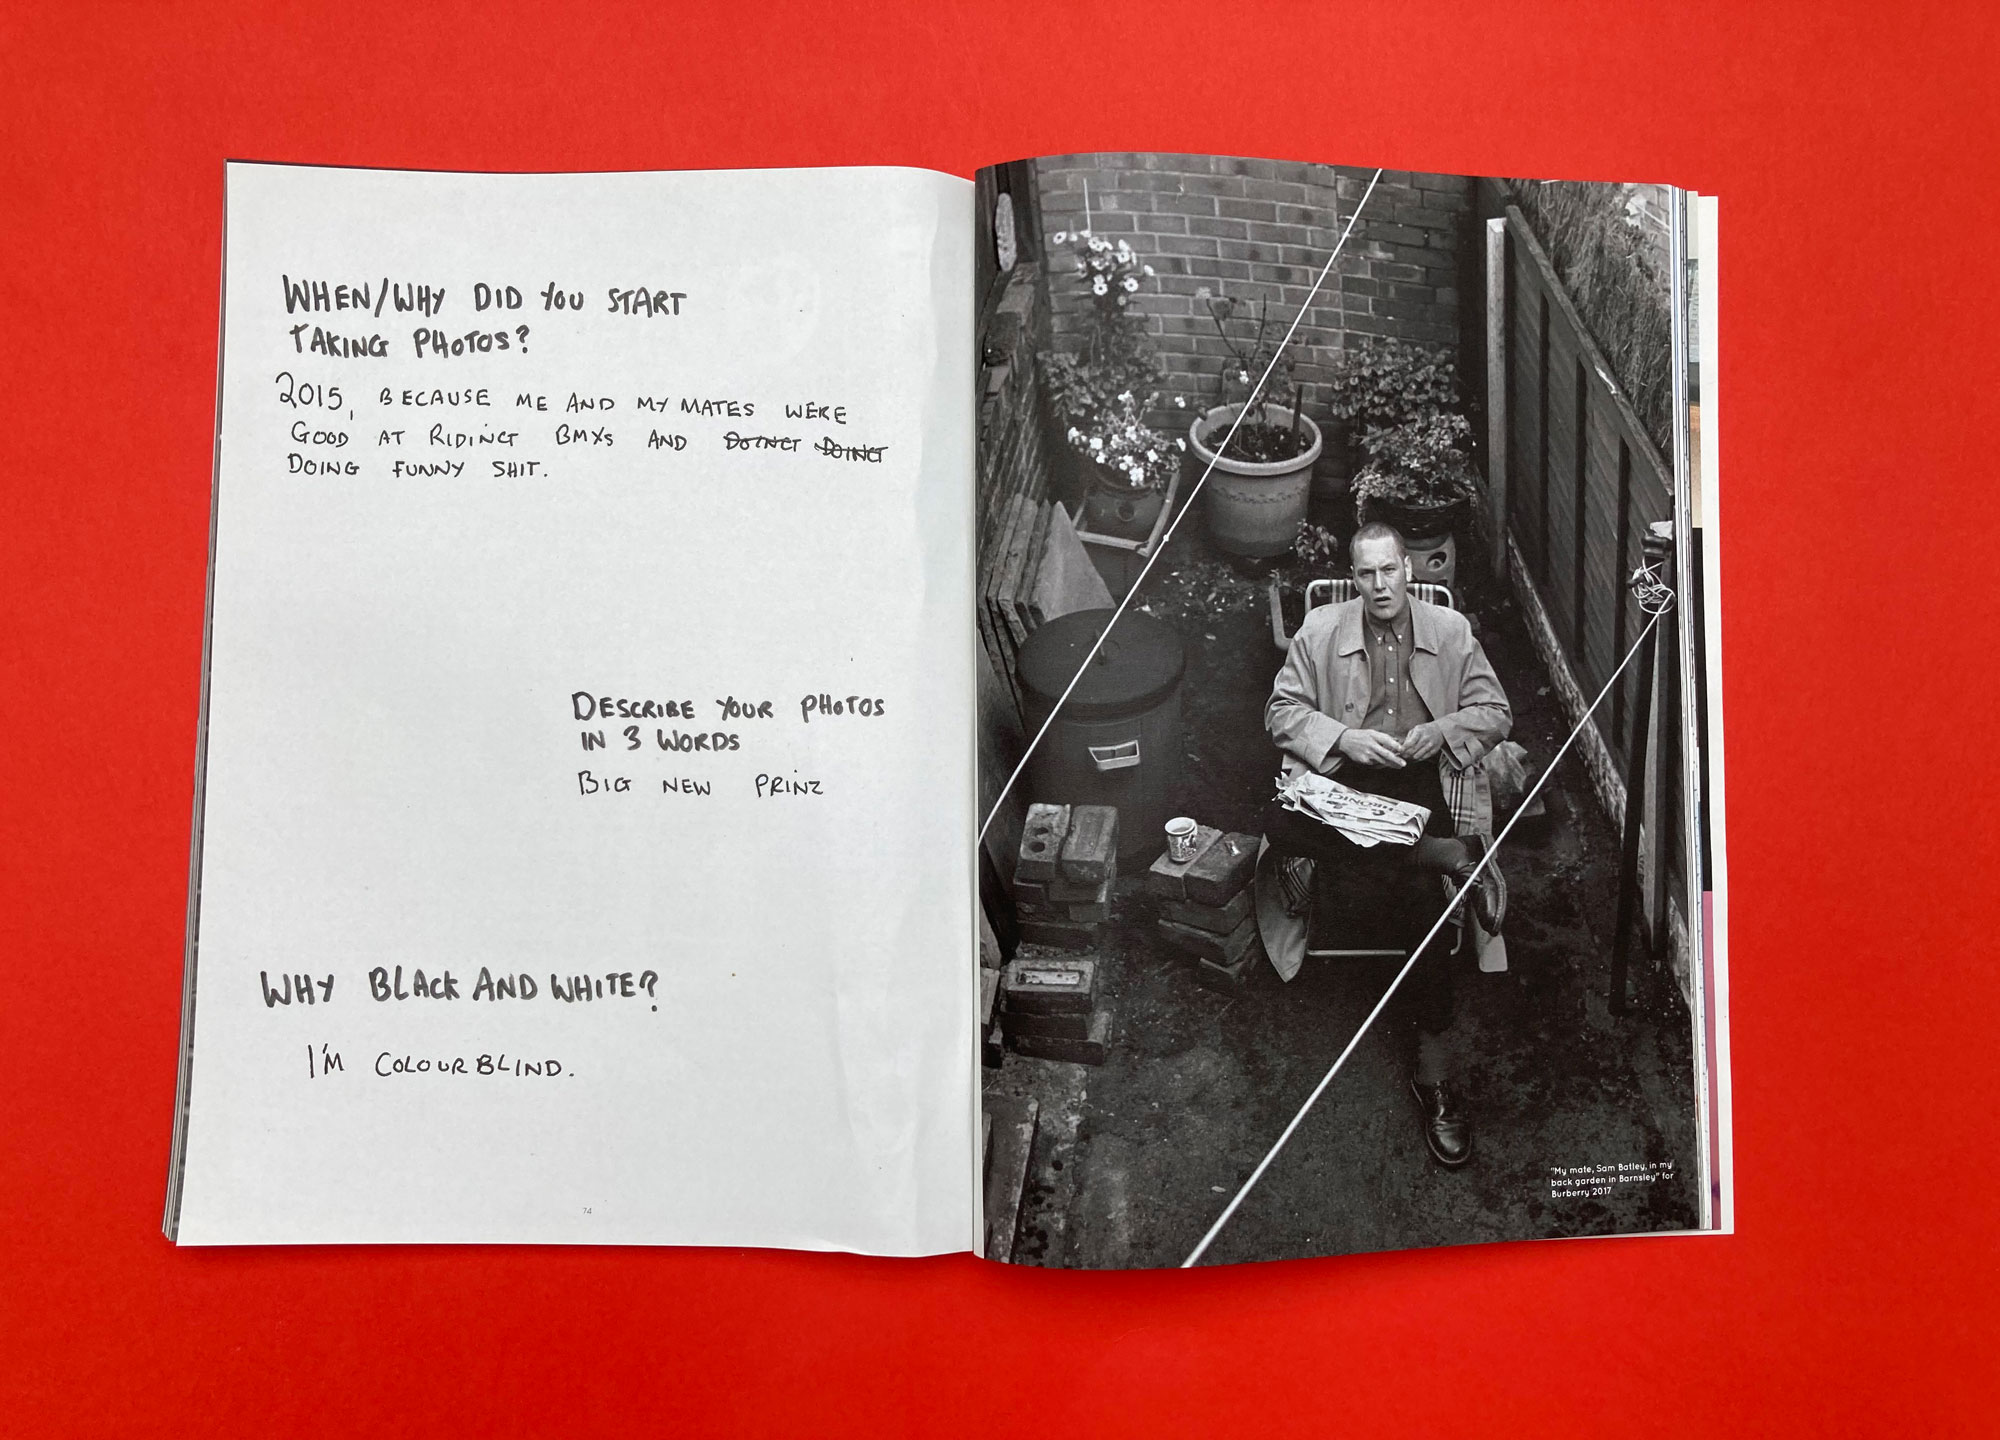 WHEN/WHY DID YOU START
TAKING PHOTOS?
2015, BECAUSE ME AND MY MATES WERE
GOOD AT RIDING BMXs AND DOING DOING
DOING FUNNY SHIT.
DESCRIBE YOUR PHOTOS
IN 3 WORDS
BIG NEW PRINZ
WHY BLACK AND WHITE?
I'M COLOURBLIND.
74
CHRONICLE
"My mate, Sam Batley, in my
back garden in Barnsley" for
Burberry 2017